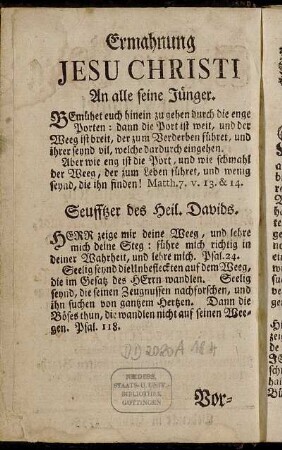 Ermahnung
JESU CHRISTI
An alle seine Jünger.
BEmühet euch hinein zu gehen durch die enge
Porten: dann die Port ist weit, und der
Weeg ist breit, der zum Verderben führet, und
ihrer seynd vil, welche dardurch eingehen.
Aber wie eng ist die Port, und wie schmahl
der Weeg, der zum Leben führet, und wenig
seynd, die ihn finden! Matth. 7. v. 13. & 14.
Seufftzer des Heil. Davids.
HERR zeige mir deine Weeg, und lehre
mich deine Steg: führe mich richtig in
deiner Wahrheit, und lehre mich. Psal. 24.
Seelig seynd die Unbefleckten auf dem Weeg,
die im Gesatz des HErrn wandlen. Seelig
seynd, die seinen Zeugnussen nachforschen, und
ihn suchen von gantzem Hertzen. Dann die
Böses thun, die wandlen nicht auf seinen Wee-
gen. Psal. 118.
DD2020 A 184
NIEDERS.
STAATS-U. UNIV.-
BIBLIOTHEK
GÖTTINGEN
Vor-